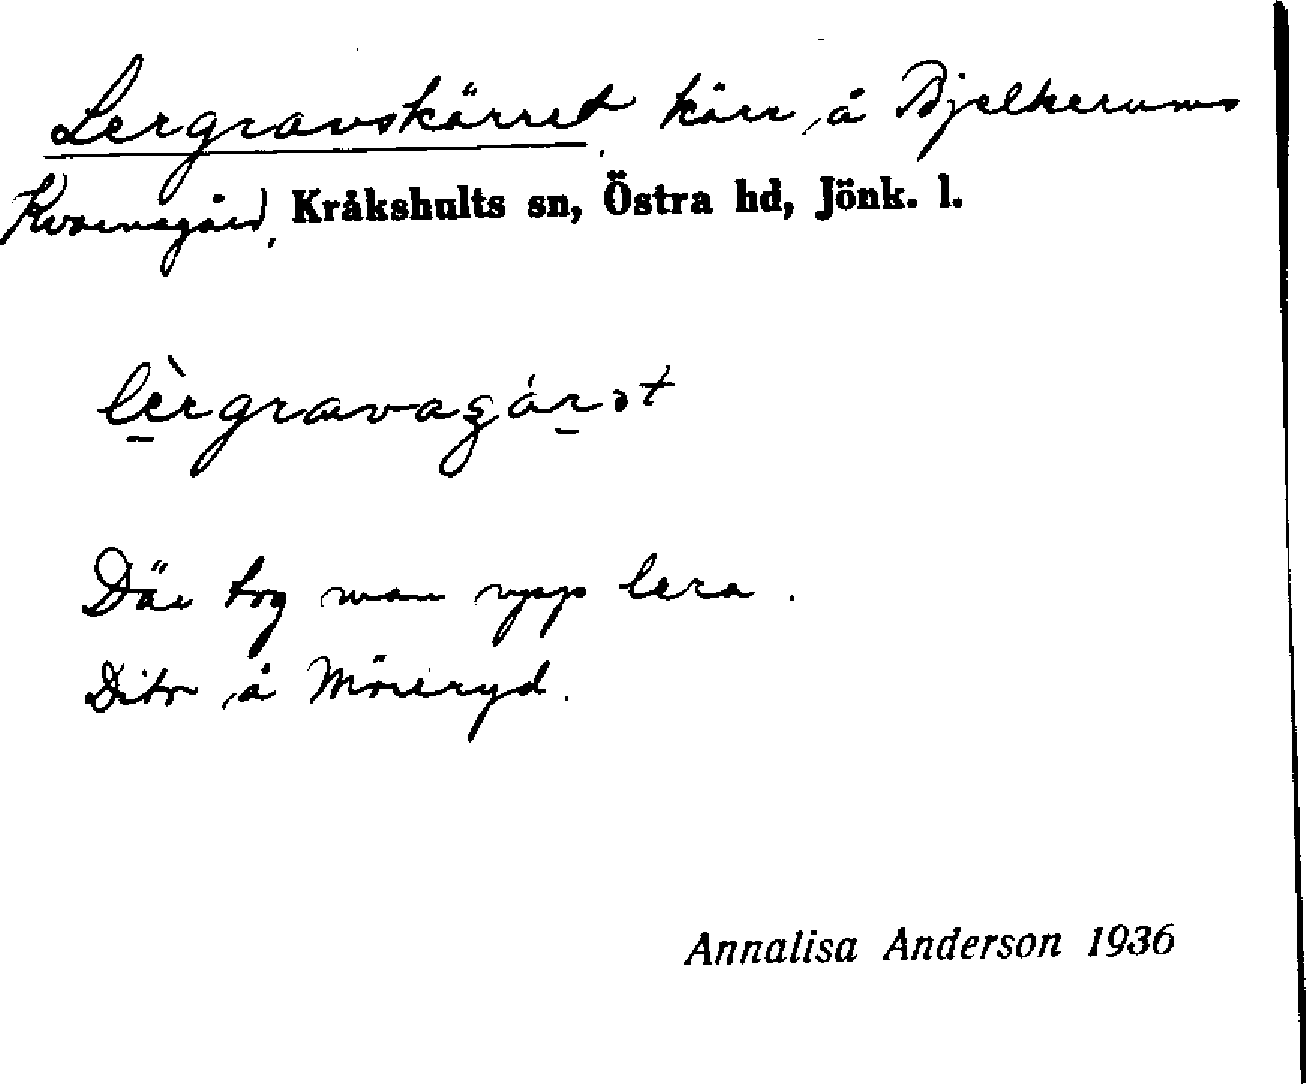 Lergravskärret, kärr å Bjelkerums
Kvarngård, Kråkshults sn, Östra hd, Jönk. l.
Där tog man upp lera.
Dito å Möreryd.
Annalisa Anderson 1936